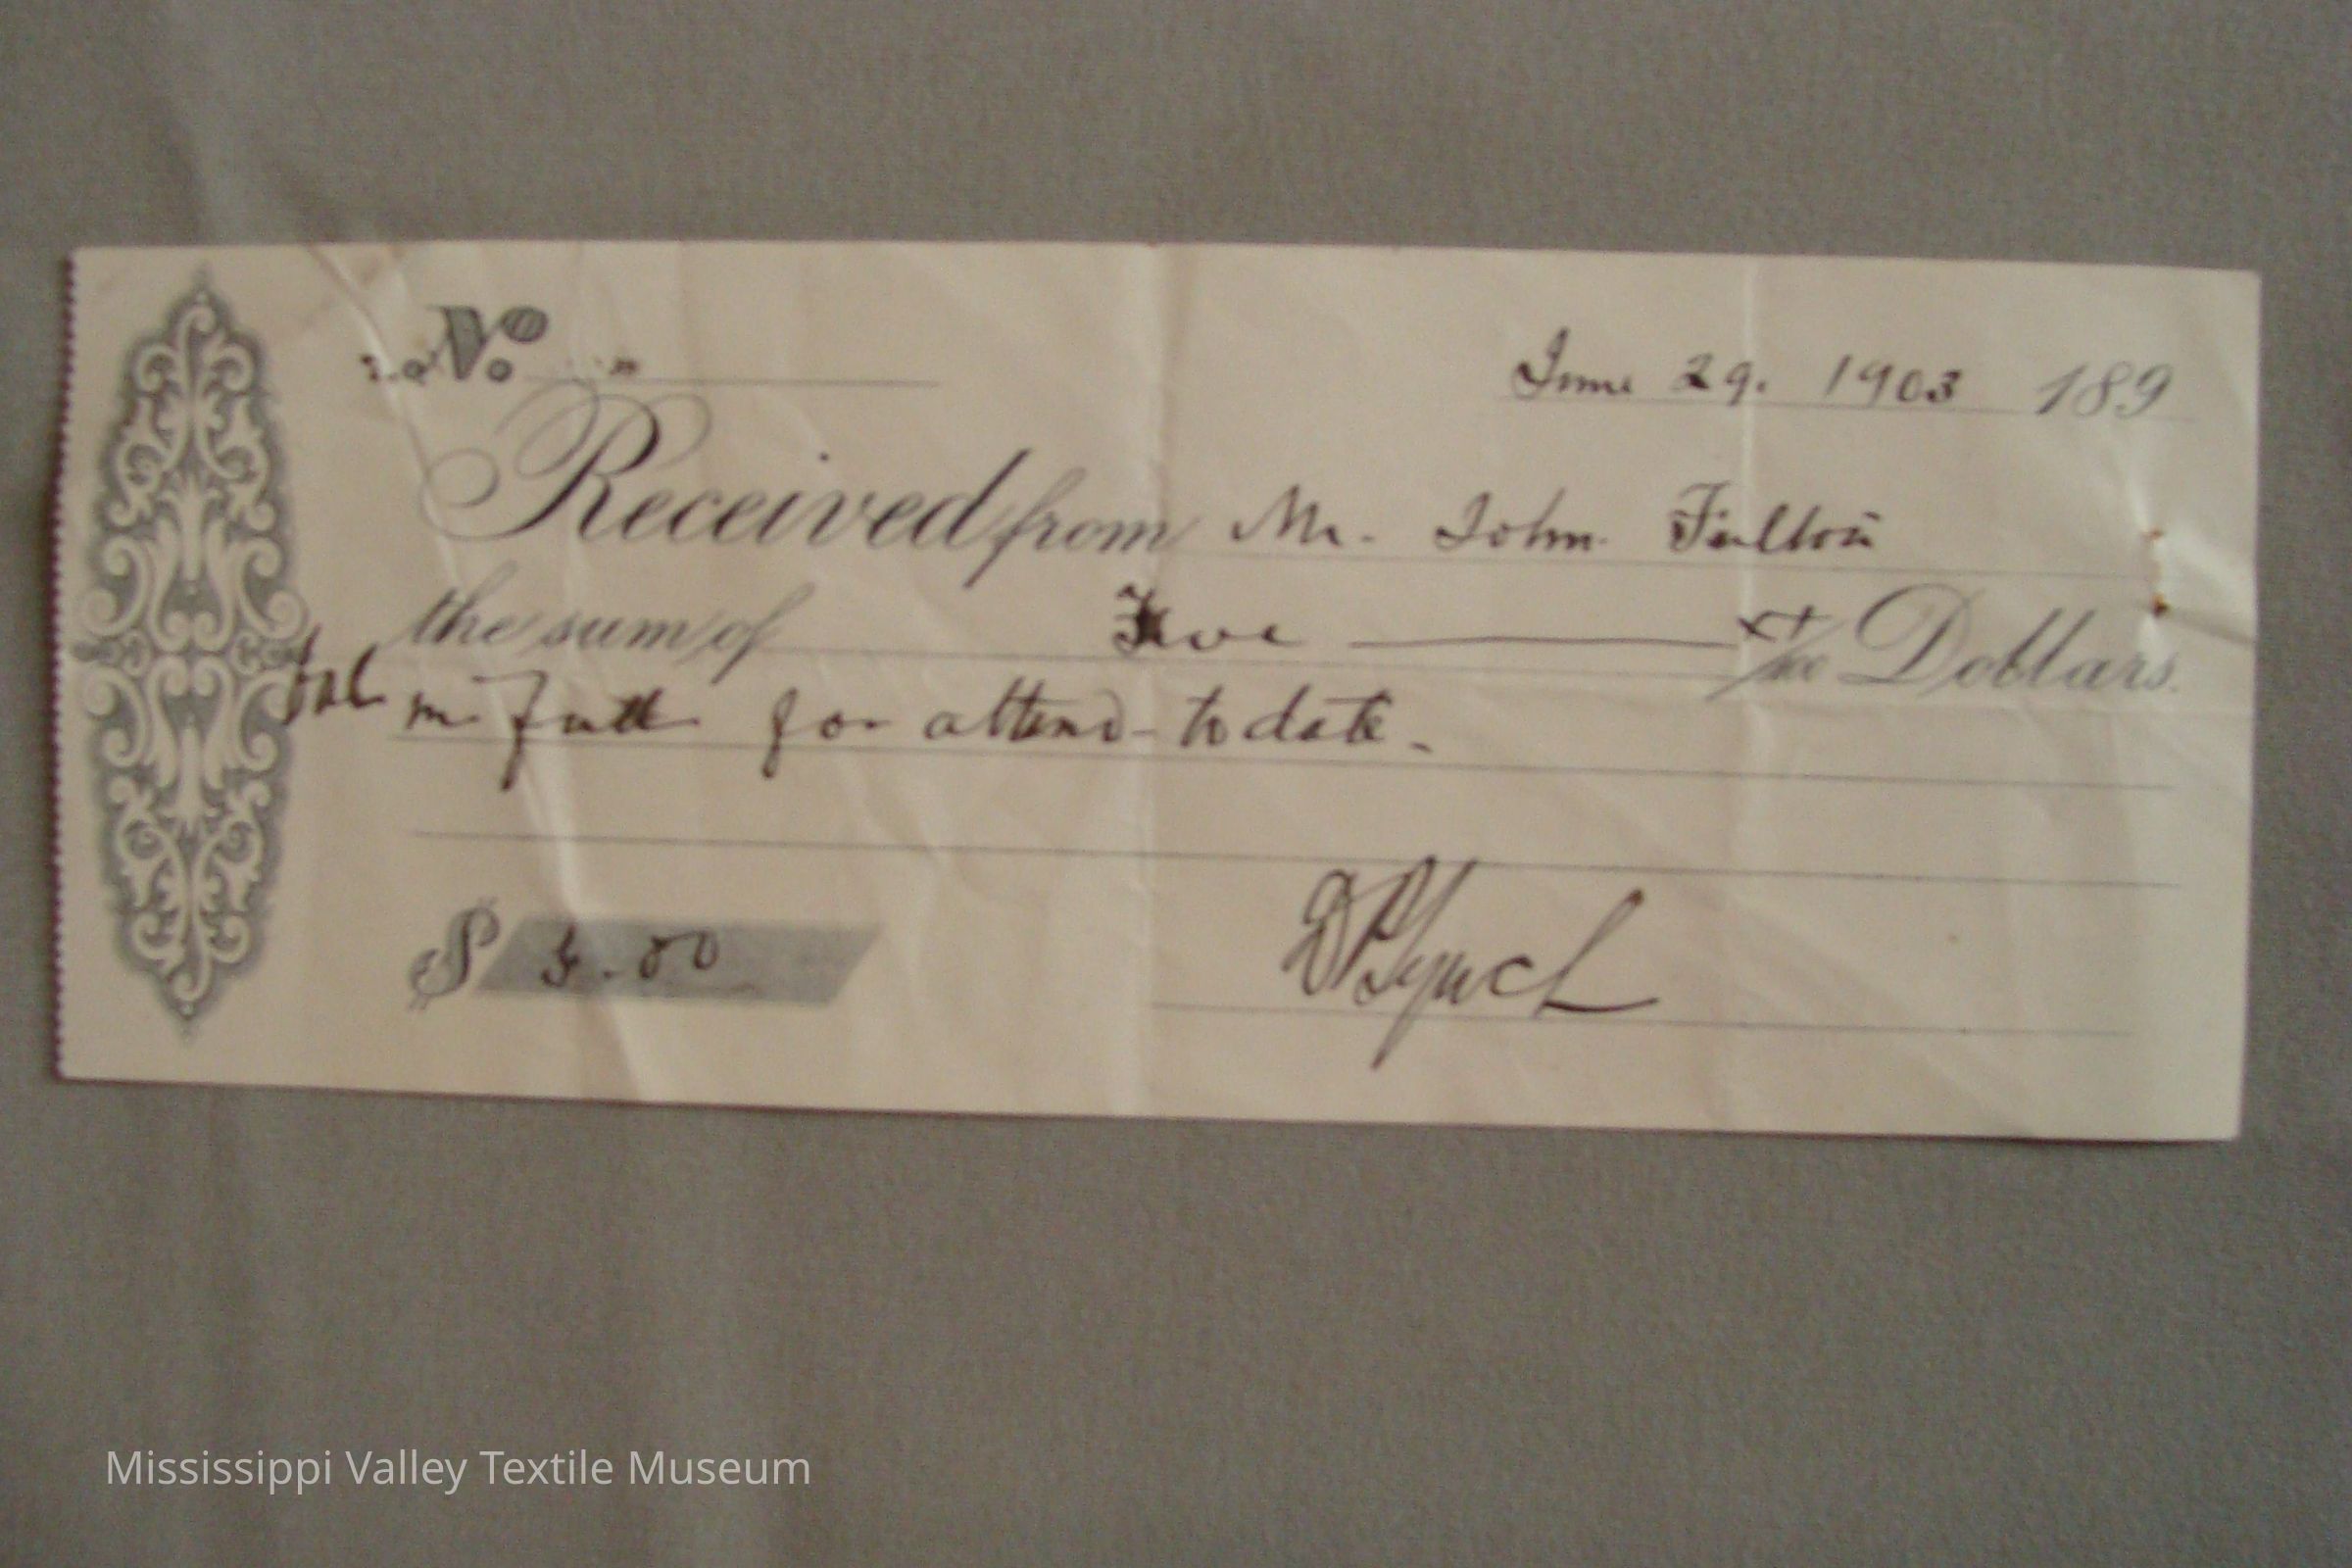 No
June 29. 1903 189
Received from Mr. John. Fulton
the sum of Five xx/100 Dollars.
in full for attend- to date.
$ 5.00
DP Lynch
Mississippi Valley Textile Museum